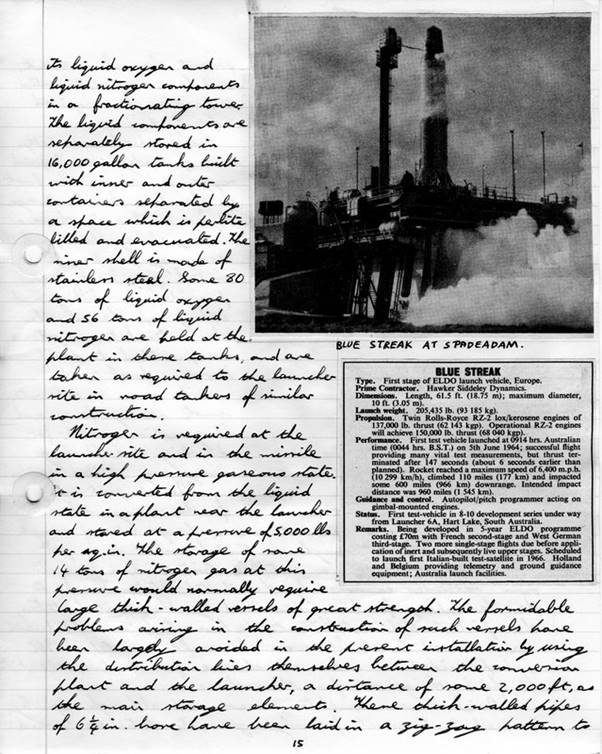 its liquid oxygen and
liquid nitrogen components
in a fractionating tower.
The liquid components are
separately stored in
16,000 gallon tanks built
with inner and outer
containers separated by
a space which is perlite
filled and evacuated. The
inner shell is made of
stainless steel. Some 80
tons of liquid oxygen
and 56 tons of liquid
nitrogen are held at the
plant in these tanks, and are
taken as required to the launcher
site in road tankers of similar
construction.
Nitrogen is required at the
launcher site and in the missile
in a high pressure gaseous state.
It is converted from the liquid
state in a plant near the launcher
and stored at a pressure of 5,000 lbs
per sq. in. The storage of some
14 tons of nitrogen gas at this
pressure would normally require
large thick-walled vessels of great strength. The formidable
problems arising in the construction of such vessels have
been largely avoided in the present installation by using
the distribution lines themselves between the conversion
plant and the launcher, a distance of some 2,000 ft, as
the main storage element. These thick-walled pipes
of 6¼ in. bore have been laid in a zig-zag pattern to
BLUE STREAK AT SPADEADAM.
BLUE STREAK
Type. First stage of ELDO launch vehicle, Europe.
Prime Contractor. Hawker Siddeley Dynamics.
Dimensions. Length, 61.5 ft. (18.75 m); maximum diameter,
10 ft. (3.05 m).
Launch weight. 205,435 lb. (93 185 kg).
Propulsion. Twin Rolls-Royce RZ-2 lox/kerosene engines of
137,000 lb. thrust (62 143 kgp). Operational RZ-2 engines
will achieve 150,000 lb. thrust (68 040 kgp).
Performance. First test vehicle launched at 0914 hrs. Australian
time (0044 hrs. B.S.T.) on 5th June 1964; successful flight
providing many vital test measurements, but thrust ter-
minated after 147 seconds (about 6 seconds earlier than
planned). Rocket reached a maximum speed of 6,400 m.p.h.
(10 299 km/h), climbed 110 miles (177 km) and impacted
some 600 miles (966 km) downrange. Intended impact
distance was 960 miles (1 545 km).
Guidance and control. Autopilot/pitch programmer acting on
gimbal-mounted engines.
Status. First test-vehicle in 8-10 development series under way
from Launcher 6A, Hart Lake, South Australia.
Remarks. Being developed in 5-year ELDO programme
costing £70m with French second-stage and West German
third-stage. Two more single-stage flights due before appli-
cation of inert and subsequently live upper stages. Scheduled
to launch first Italian-built test-satellite in 1966. Holland
and Belgium providing telemetry and ground guidance
equipment; Australia launch facilities.
15